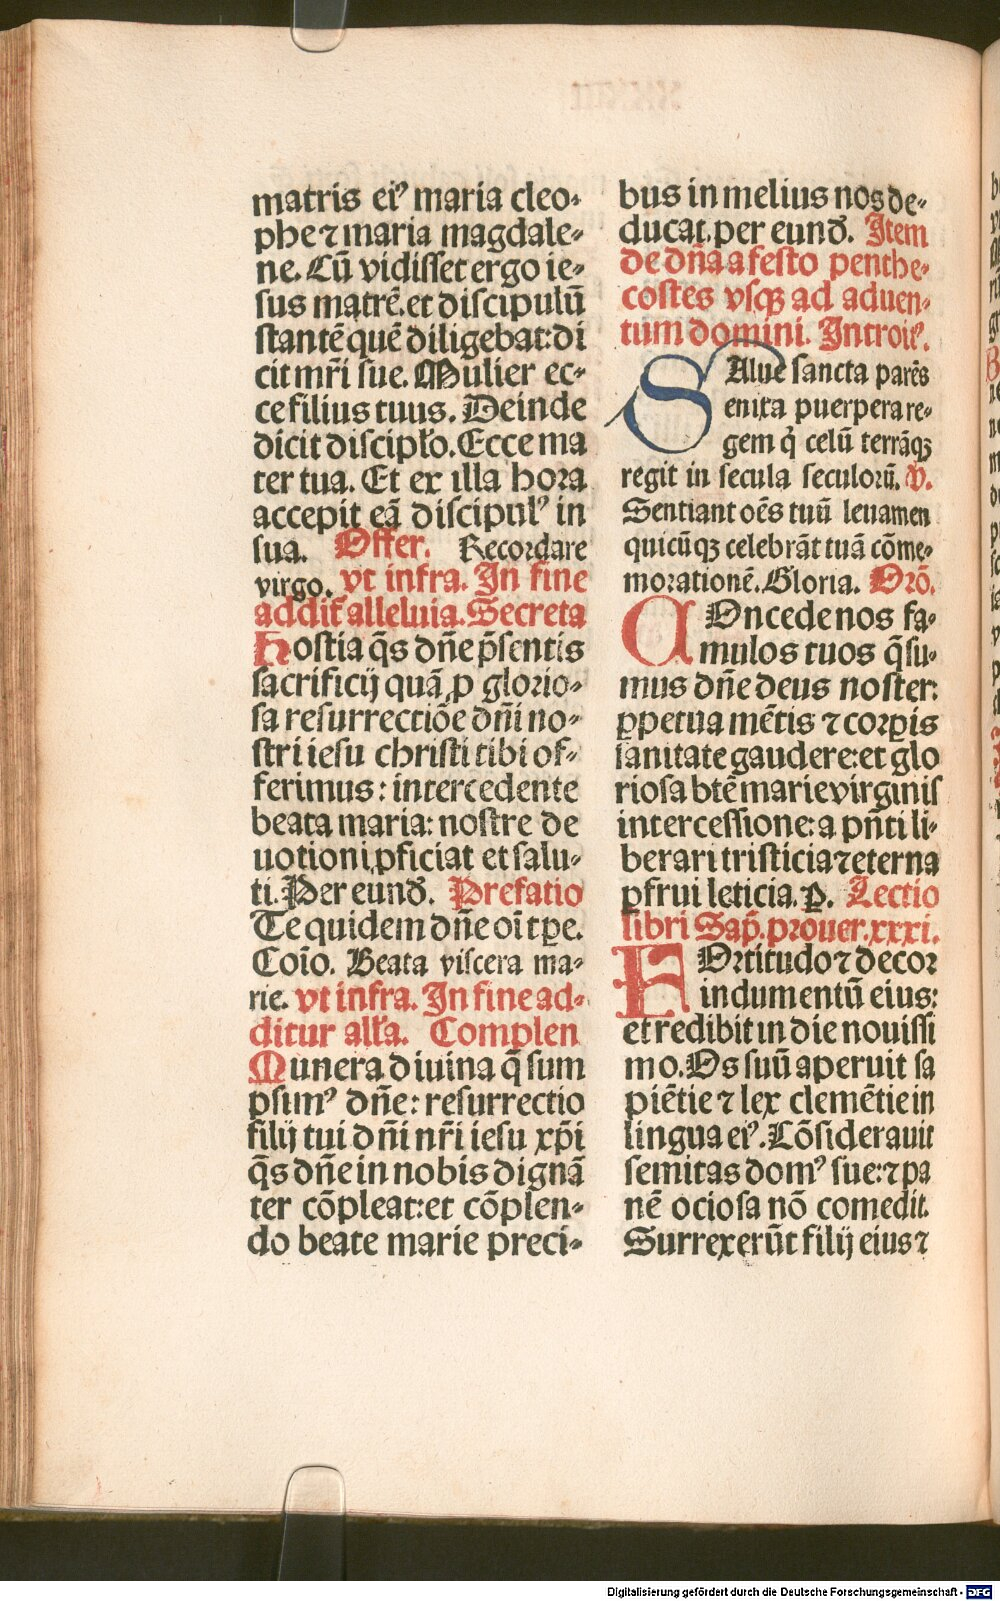 matris ei⁹ maria cleo-
phe ⁊ maria magdale-
ne. Cū vidisset ergo ie-
sus matrē. et discipulū
stantē quē diligebat: di
cit mr̄i sue. Mulier ec-
ce filius tuus. Deinde
dicit discipło. Ecce ma
ter tua. Et ex illa hora
accepit eā discipul⁹ in
sua. Offer. Recordare
virgo. vt infra. In fine
addit̄ alleluia. Secreta
Hostia q̄s dn̄e p̄sentis
sacrificij quā ꝓ glorio-
sa resurrectiōe dn̄i no-
stri iesu christi tibi of-
ferimus: intercedente
beata maria: nostre de
uotioni ꝓficiat et salu-
ti. Per eund̄. Prefatio
Te quidem dn̄e oī tꝑe.
Coīo. Beata viscera ma-
rie. vt infra. In fine ad-
ditur alła. Complen
Munera diuina q̄sum
psum⁹ dn̄e: resurrectio
filij tui dn̄i nr̄i iesu xp̄i
q̄s dn̄e in nobis dignā
ter cōpleat: et cōplen-
do beate marie preci-
bus in melius nos de-
ducat. per eund̄. Item
de dn̄a a festo penthe-
costes vsqꝫ ad aduen-
tum domini. Introit⁹.
SAlue sancta parēs
enixa puerpera re-
gem q̇ celū terrāqꝫ
regit in secula seculoꝝ̄. V.
Sentiant oēs tuū leuamen
quicūqꝫ celebrāt tuā cōme-
morationē. Gloria. Orō.
COncede nos fa-
mulos tuos q̄su-
mus dn̄e deus noster:
ꝑpetua mētis ⁊ corꝑis
sanitate gaudere: et glo
riosa btē marie virginis
intercessione: a pn̄ti li-
berari tristicia ⁊ eterna
pfrui leticia. ꝑ. Lectio
libri Sap̄. prouer. xxxi.
FOrtitudo ⁊ decor
indumentū eius:
et redibit in die nouissi
mo. Os suū aperuit sa
piētie ⁊ lex clemētie in
lingua ei⁹. Cōsiderauit
semitas dom⁹ sue: ⁊ pa
nē ociosa nō comedit.
Surrexerūt filij eius ⁊
Digitalisierung gefördert durch die Deutsche Forschungsgemeinschaft - DFG